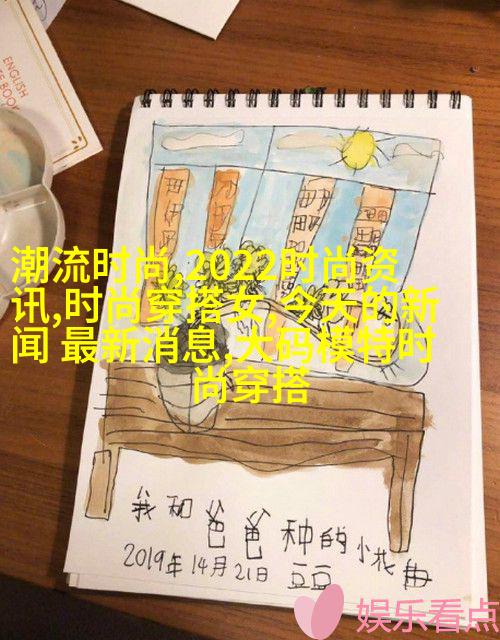 ENGLISH
E BOOK
潮流时尚,2022时尚资
讯,时尚穿搭女,今天的新
闻 最新消息,大码模特时
尚穿搭
我和爸爸种的小
2019年14月21日 豆豆
娱乐看点